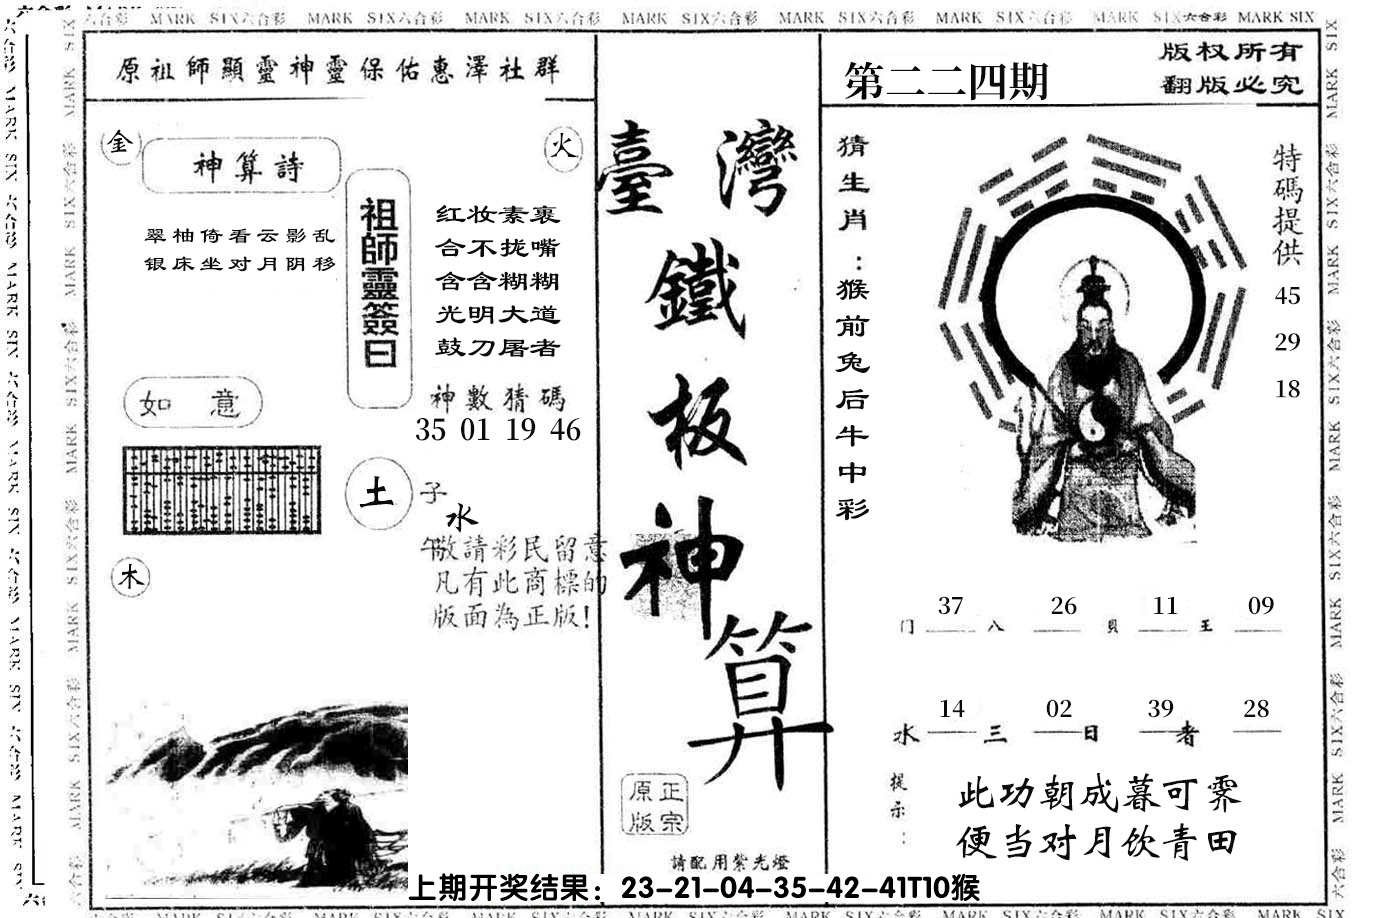 六合彩 MARK SIX六合彩 MARK SIX六合彩 MARK SIX六合彩 MARK SIX六合彩 MARK SIX六合彩 MARK SIX六合彩 MARK SIX六合彩 MARK SIX
原祖師顯靈神靈保佑惠澤社群
金
火
神算詩
翠柚倚看云影乱
银床坐对月阴移
祖師靈簽曰
红妆素裹
合不拢嘴
含含糊糊
光明大道
鼓刀屠者
神數猜碼
35 01 19 46
如 意
土
子
水
午
木
敬請彩民留意
凡有此商標的
版面為正版!
臺灣
鐵
板
神
算
正宗
原版
請配用紫光燈
第二二四期
版权所有
翻版必究
猜生肖:猴前兔后牛中彩
特碼提供
45
29
18
37 26 11 09
门 八 貝 王
14 02 39 28
水 三 日 者
提示:
此功朝成暮可霁
便当对月饮青田
上期开奖结果：23-21-04-35-42-41T10猴